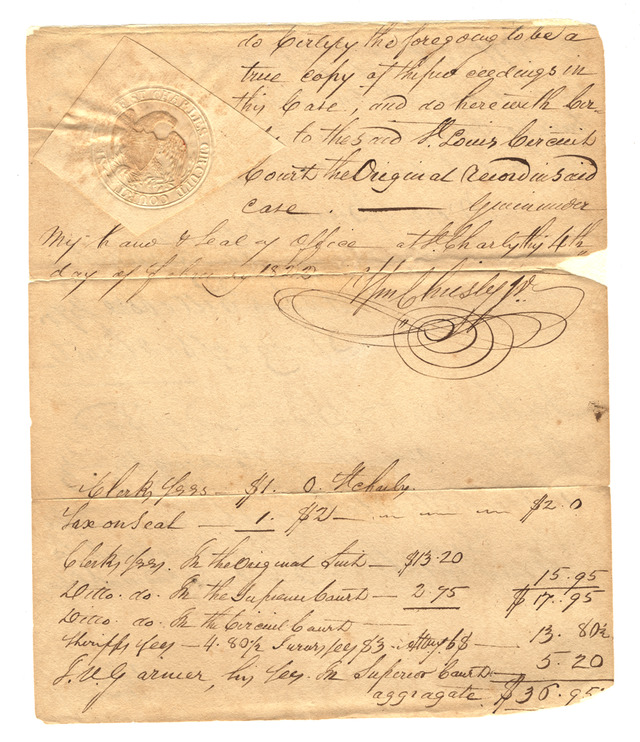 do Certify the foregoing to be a
true copy of the proceedings in
this Case, and do herewith Cir-
to the said St. Louis Circuit
Court the Original Record in Said
case. Given under
My hand & Seal of Office at St. Charles this 4th
day of February 1822
ST CHARLES CIRCUIT COURT
Clerks fees — $1. 0. St Charles.
Tax on Seal — 1. $2 — $2.0
Clerks fees. In the Original Suit — $13.20
15.95
Ditto. do. In the Supreme Court — 2.75 $17.95
Ditto. do. In the Circuit Court —
Sheriffs fees — 4.80½ Jurors fees $3 6$ — 13.80½
his fees. In Superior Court — 5.20
aggragate $36.95